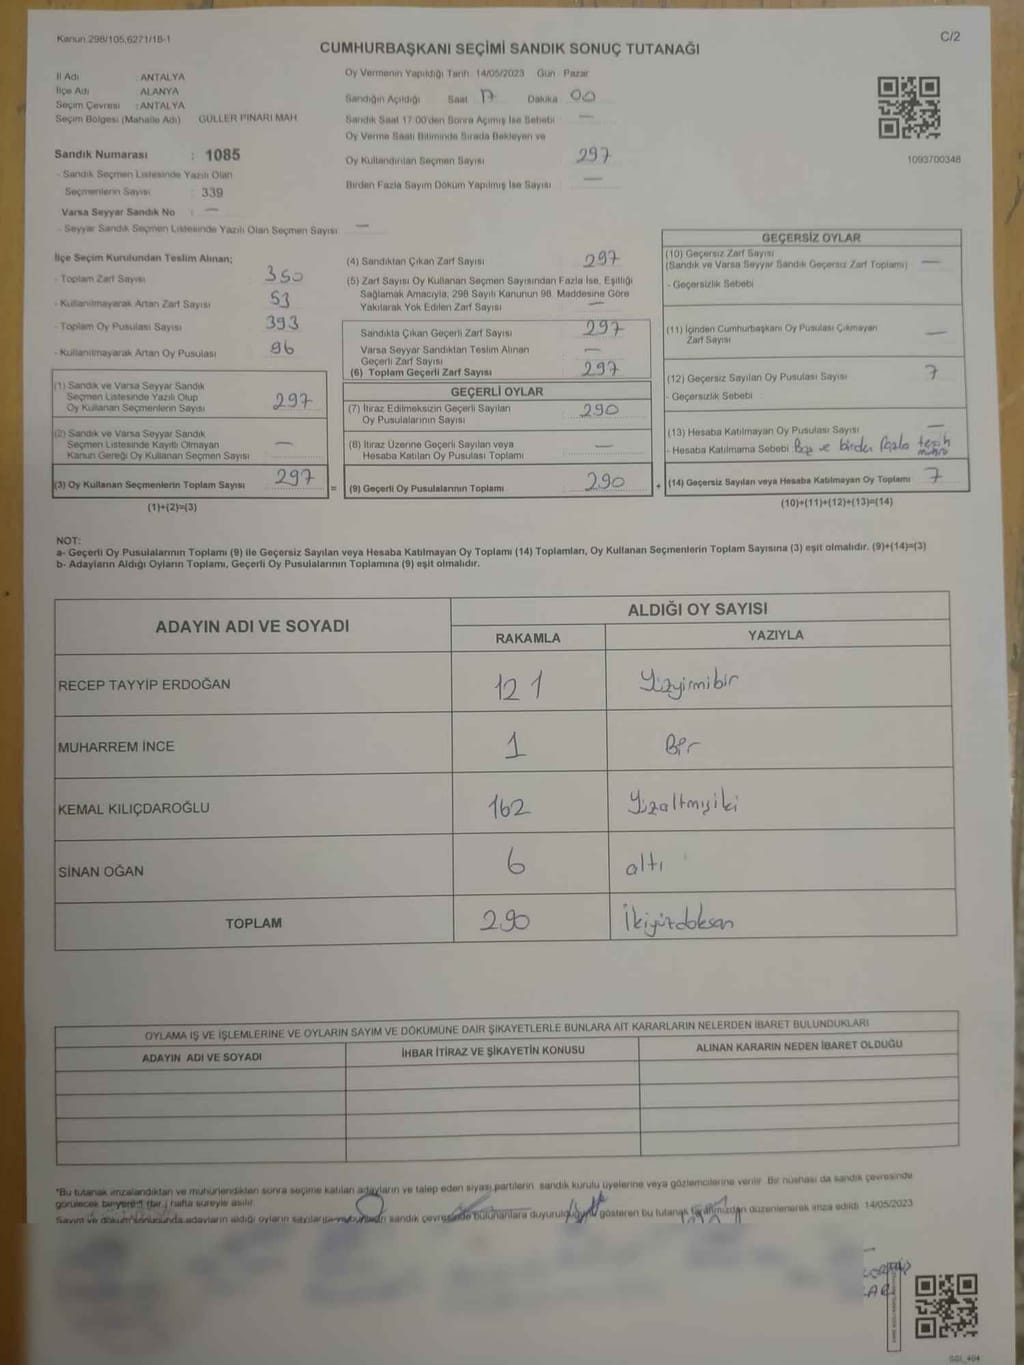 Kanun 298/105,6271/18-1
C/2
CUMHURBAŞKANI SEÇİMİ SANDIK SONUÇ TUTANAĞI
İl Adı : ANTALYA
İlçe Adı : ALANYA
Seçim Çevresi : ANTALYA
Seçim Bölgesi (Mahalle Adı) GÜLLER PINARI MAH
Sandık Numarası : 1085
- Sandık Seçmen Listesinde Yazılı Olan
Seçmenlerin Sayısı : 339
Varsa Seyyar Sandık No : —
- Seyyar Sandık Seçmen Listesinde Yazılı Olan Seçmen Sayısı: —
Oy Vermenin Yapıldığı Tarih: 14/05/2023 Gün: Pazar
Sandığın Açıldığı Saat 17 Dakika 00
Sandık Saat 17:00'den Sonra Açımış İse Sebebi —
Oy Verme Saati Bitiminde Sırada Bekleyen ve
Oy Kullandırılan Seçmen Sayısı 297
Birden Fazla Sayım Döküm Yapılmış İse Sayısı —
1093700348
İlçe Seçim Kurulundan Teslim Alınan;
- Toplam Zarf Sayısı 350
- Kullanılmayarak Artan Zarf Sayısı 53
- Toplam Oy Pusulası Sayısı 393
- Kullanılmayarak Artan Oy Pusulası 96
(1) Sandık ve Varsa Seyyar Sandık
Seçmen Listesinde Yazılı Olup
Oy Kullanan Seçmenlerin Sayısı 297
(2) Sandık ve Varsa Seyyar Sandık
Seçmen Listesinde Kayıtlı Olmayan
Kanun Gereği Oy Kullanan Seçmen Sayısı —
(3) Oy Kullanan Seçmenlerin Toplam Sayısı 297 =
(1)+(2)=(3)
(4) Sandıktan Çıkan Zarf Sayısı 297
(5) Zarf Sayısı Oy Kullanan Seçmen Sayısından Fazla İse, Eşitliği
Sağlamak Amacıyla, 298 Sayılı Kanunun 98. Maddesine Göre
Yakılarak Yok Edilen Zarf Sayısı —
Sandıkta Çıkan Geçerli Zarf Sayısı 297
Varsa Seyyar Sandıktan Teslim Alınan
Geçerli Zarf Sayısı —
(6) Toplam Geçerli Zarf Sayısı 297
GEÇERLİ OYLAR
(7) İtiraz Edilmeksizin Geçerli Sayılan
Oy Pusulalarının Sayısı 290
(8) İtiraz Üzerine Geçerli Sayılan veya
Hesaba Katılan Oy Pusulası Toplamı —
(9) Geçerli Oy Pusulalarının Toplamı 290 +
GEÇERSİZ OYLAR
(10) Geçersiz Zarf Sayısı
(Sandık ve Varsa Seyyar Sandık Geçersiz Zarf Toplamı) —
- Geçersizlik Sebebi
(11) İçinden Cumhurbaşkanı Oy Pusulası Çıkmayan
Zarf Sayısı —
(12) Geçersiz Sayılan Oy Pusulası Sayısı 7
- Geçersizlik Sebebi
(13) Hesaba Katılmayan Oy Pusulası Sayısı —
- Hesaba Katılmama Sebebi Boş ve birden fazla tercih
(14) Geçersiz Sayılan veya Hesaba Katılmayan Oy Toplamı 7
(10)+(11)+(12)+(13)=(14)
NOT:
a- Geçerli Oy Pusulalarının Toplamı (9) ile Geçersiz Sayılan veya Hesaba Katılmayan Oy Toplamı (14) Toplamları, Oy Kullanan Seçmenlerin Toplam Sayısına (3) eşit olmalıdır. (9)+(14)=(3)
b- Adayların Aldığı Oyların Toplamı, Geçerli Oy Pusulalarının Toplamına (9) eşit olmalıdır.
ADAYIN ADI VE SOYADI
ALDIĞI OY SAYISI
RAKAMLA YAZIYLA
RECEP TAYYİP ERDOĞAN 121 Yüzyirmibir
MUHARREM İNCE 1 Bir
KEMAL KILIÇDAROĞLU 162 Yüzaltmışiki
SİNAN OĞAN 6 altı
TOPLAM 290 İkiyüzdoksan
OYLAMA İŞ VE İŞLEMLERİNE VE OYLARIN SAYIM VE DÖKÜMÜNE DAİR ŞİKAYETLERLE BUNLARA AİT KARARLARIN NELERDEN İBARET BULUNDUKLARI
ADAYIN ADI VE SOYADI İHBAR İTİRAZ VE ŞİKAYETİN KONUSU ALINAN KARARIN NEDEN İBARET OLDUĞU
*Bu tutanak imzalandıktan ve mühürlendikten sonra seçime katılan adayların ve talep eden siyasi partilerin sandık kurulu üyelerine veya gözlemcilerine verilir. Bir nüshası da sandık çevresinde
görülecek bir yere 1 (bir) hafta süreyle asılır.
Sayım ve döküm sonucunda adayların aldığı oyların sayılarını sandık çevresinde bulunanlara duyurulduğunu gösteren bu tutanak tarafımızdan düzenlenerek imza edildi. 14/05/2023